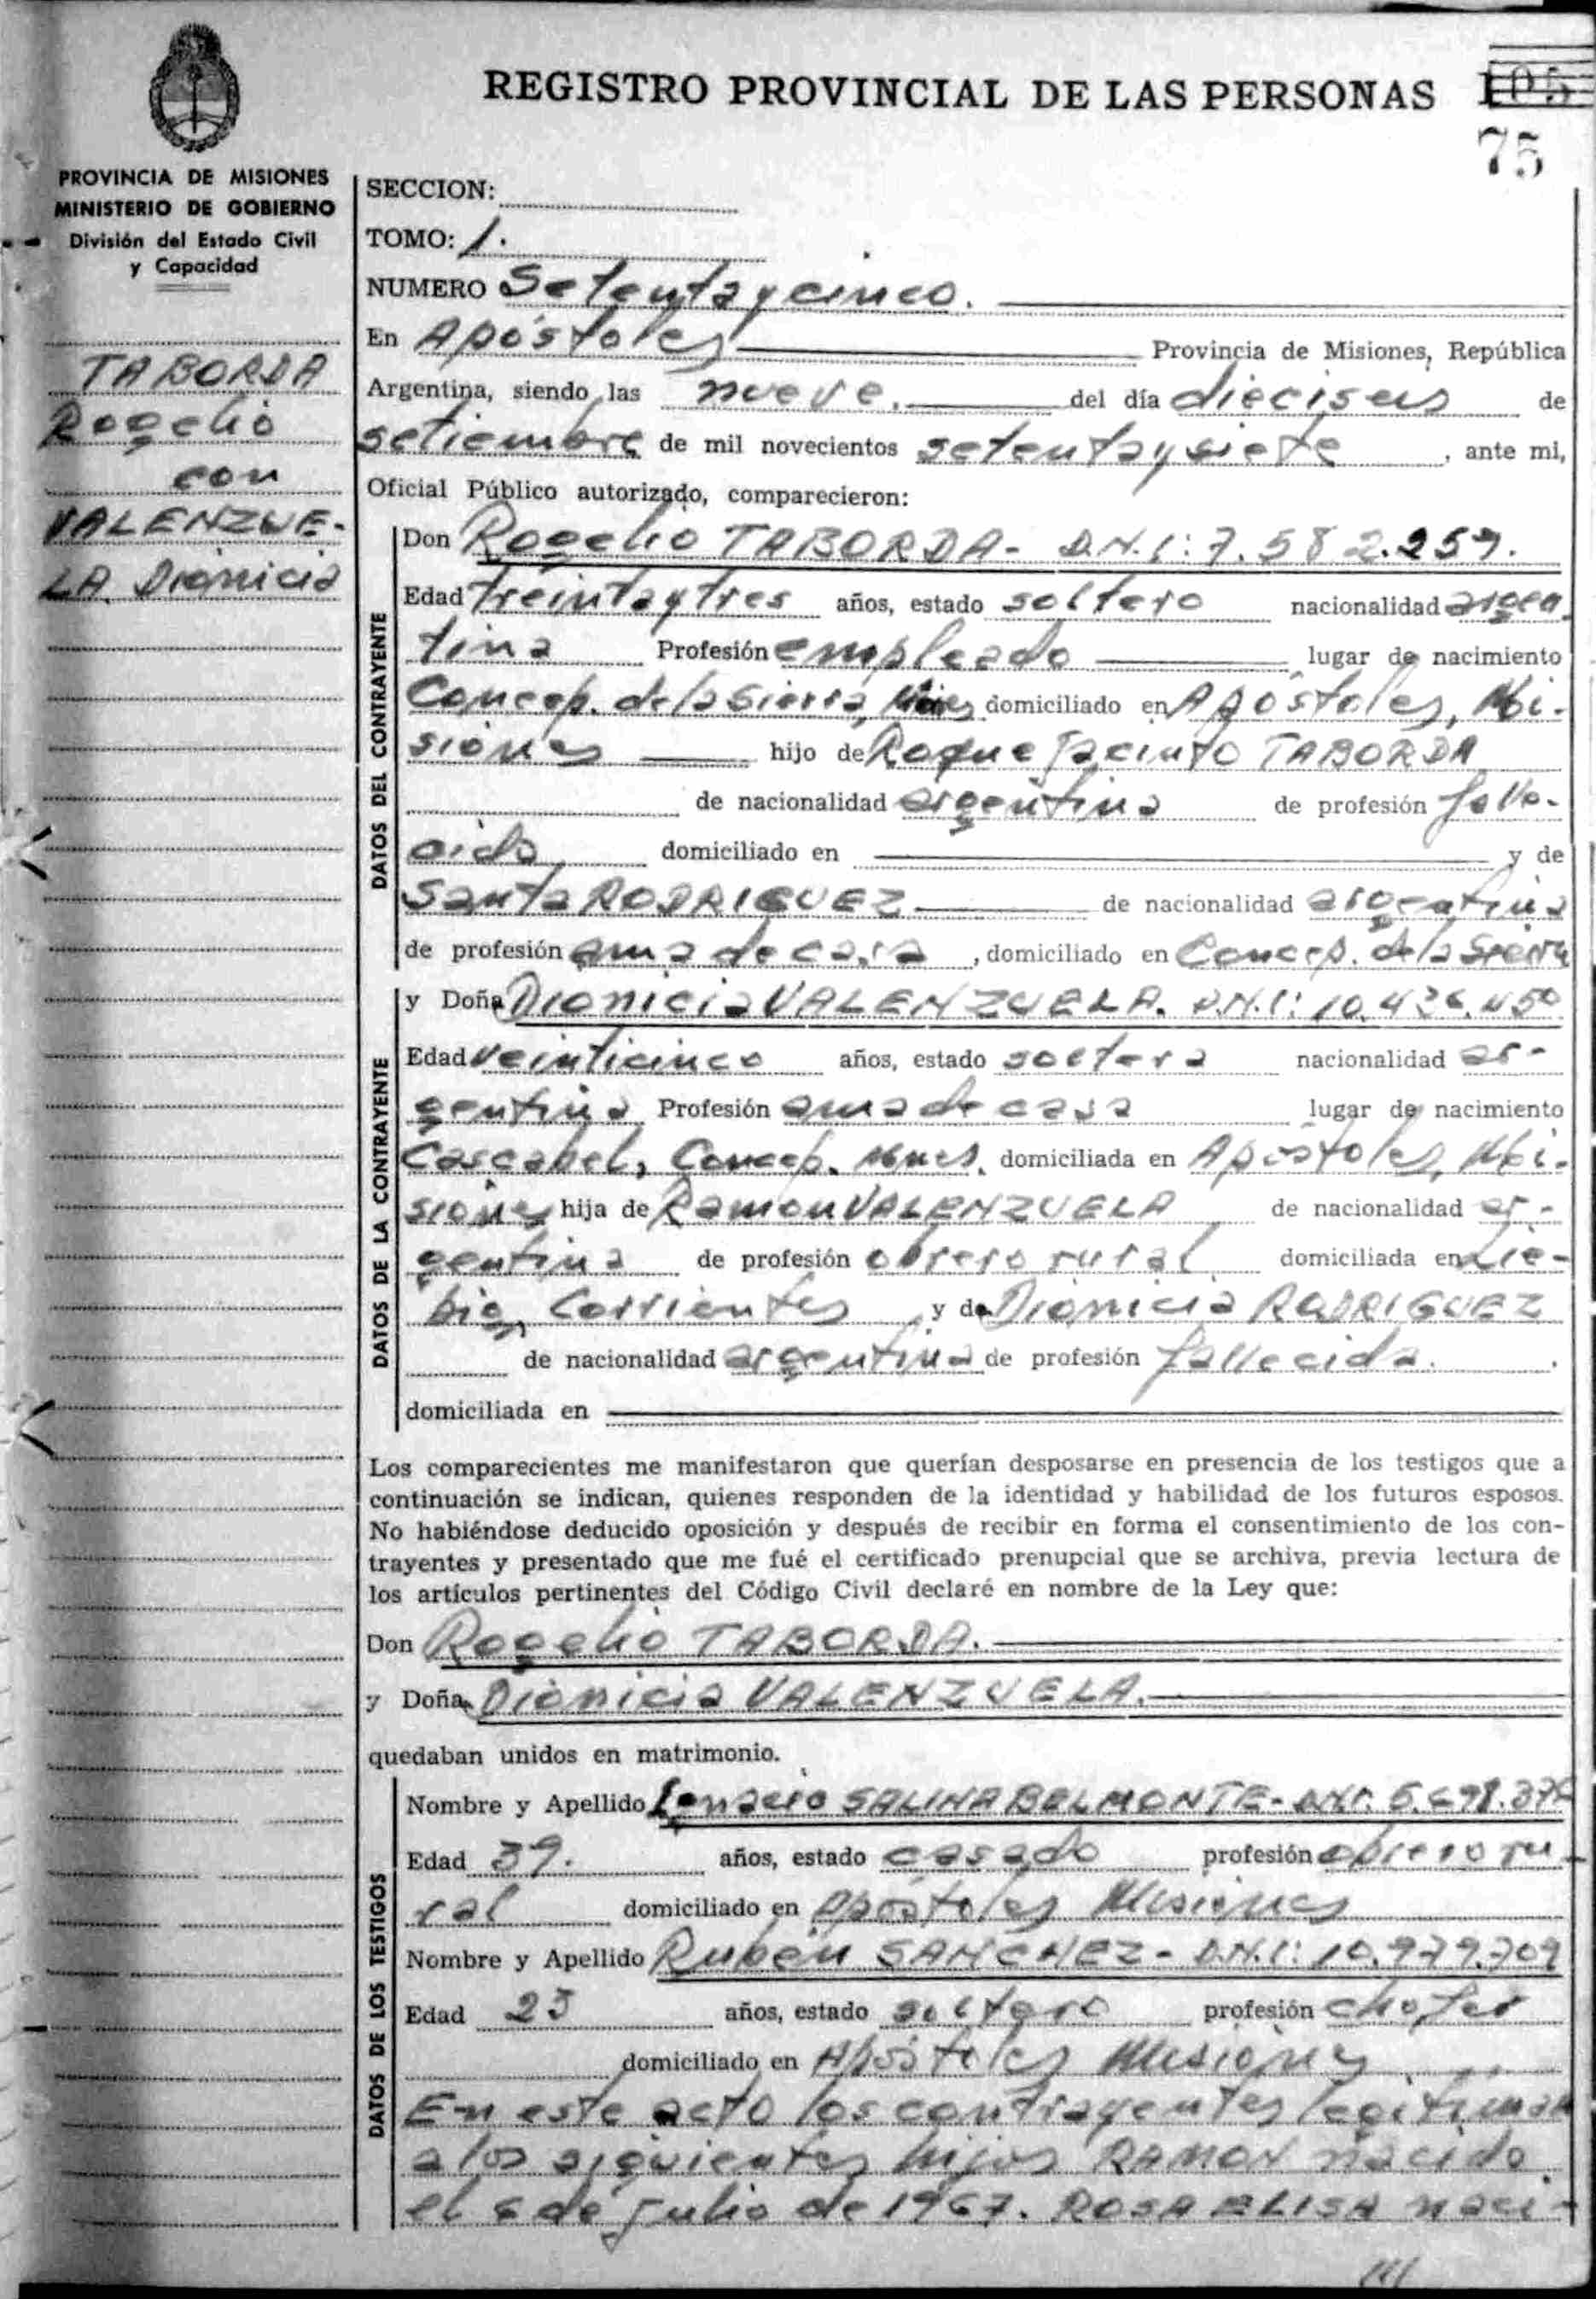 REGISTRO PROVINCIAL DE LAS PERSONAS 105
75
PROVINCIA DE MISIONES
MINISTERIO DE GOBIERNO
División del Estado Civil
y Capacidad
TABORDA
Rogelio
con
VALENZUE-
LA Dionicia
SECCION:
TOMO: 1.
NUMERO Setentaycinco.
En Apóstoles Provincia de Misiones, República
Argentina, siendo las nueve. del día dieciseis de
setiembre de mil novecientos setentaysiete, ante mi,
Oficial Público autorizado, comparecieron:
DATOS DEL CONTRAYENTE
Don Rogelio TABORDA- D.N.I: 7.582.259.
Edad treintaytres años, estado soltero nacionalidad argen
tina Profesión empleado lugar de nacimiento
Concep. de la Sierra, Mnes domiciliado en Apóstoles, Mi-
siones hijo de Roque Jacinto TABORDA
de nacionalidad argentina de profesión falle-
cido domiciliado en y de
Santa RODRIGUEZ de nacionalidad argentina
de profesión ama de casa, domiciliado en Concep. de la Sierra
DATOS DE LA CONTRAYENTE
y Doña Dionicia VALENZUELA. D.N.I: 10.436.450
Edad veinticinco años, estado soltera nacionalidad ar-
gentina Profesión ama de casa lugar de nacimiento
Cascabel, Concep. Mnes. domiciliada en Apóstoles, Mi-
siones hija de Ramon VALENZUELA de nacionalidad ar-
gentina de profesión obrero rural domiciliada en Lie-
big, Corrientes y de Dionicia RODRIGUEZ
de nacionalidad argentina de profesión fallecida.
domiciliada en
Los comparecientes me manifestaron que querían desposarse en presencia de los testigos que a
continuación se indican, quienes responden de la identidad y habilidad de los futuros esposos.
No habiéndose deducido oposición y después de recibir en forma el consentimiento de los con-
trayentes y presentado que me fué el certificado prenupcial que se archiva, previa lectura de
los artículos pertinentes del Código Civil declaré en nombre de la Ley que:
Don Rogelio TABORDA.
y Doña Dionicia VALENZUELA.
quedaban unidos en matrimonio.
DATOS DE LOS TESTIGOS
Nombre y Apellido Ignacio SALINA BELMONTE- DNI.
Edad 39. años, estado casado profesión obrero ru-
ral domiciliado en Apóstoles Misiones
Nombre y Apellido Rubén SANCHEZ- D.N.I: 10.979.709
Edad 23 años, estado soltero profesión chofer
domiciliado en Apóstoles Misiones
En este acto los contrayentes legitiman
a los siguientes hijos RAMON nacido
el 6 de julio de 1967. ROSA ELISA naci-